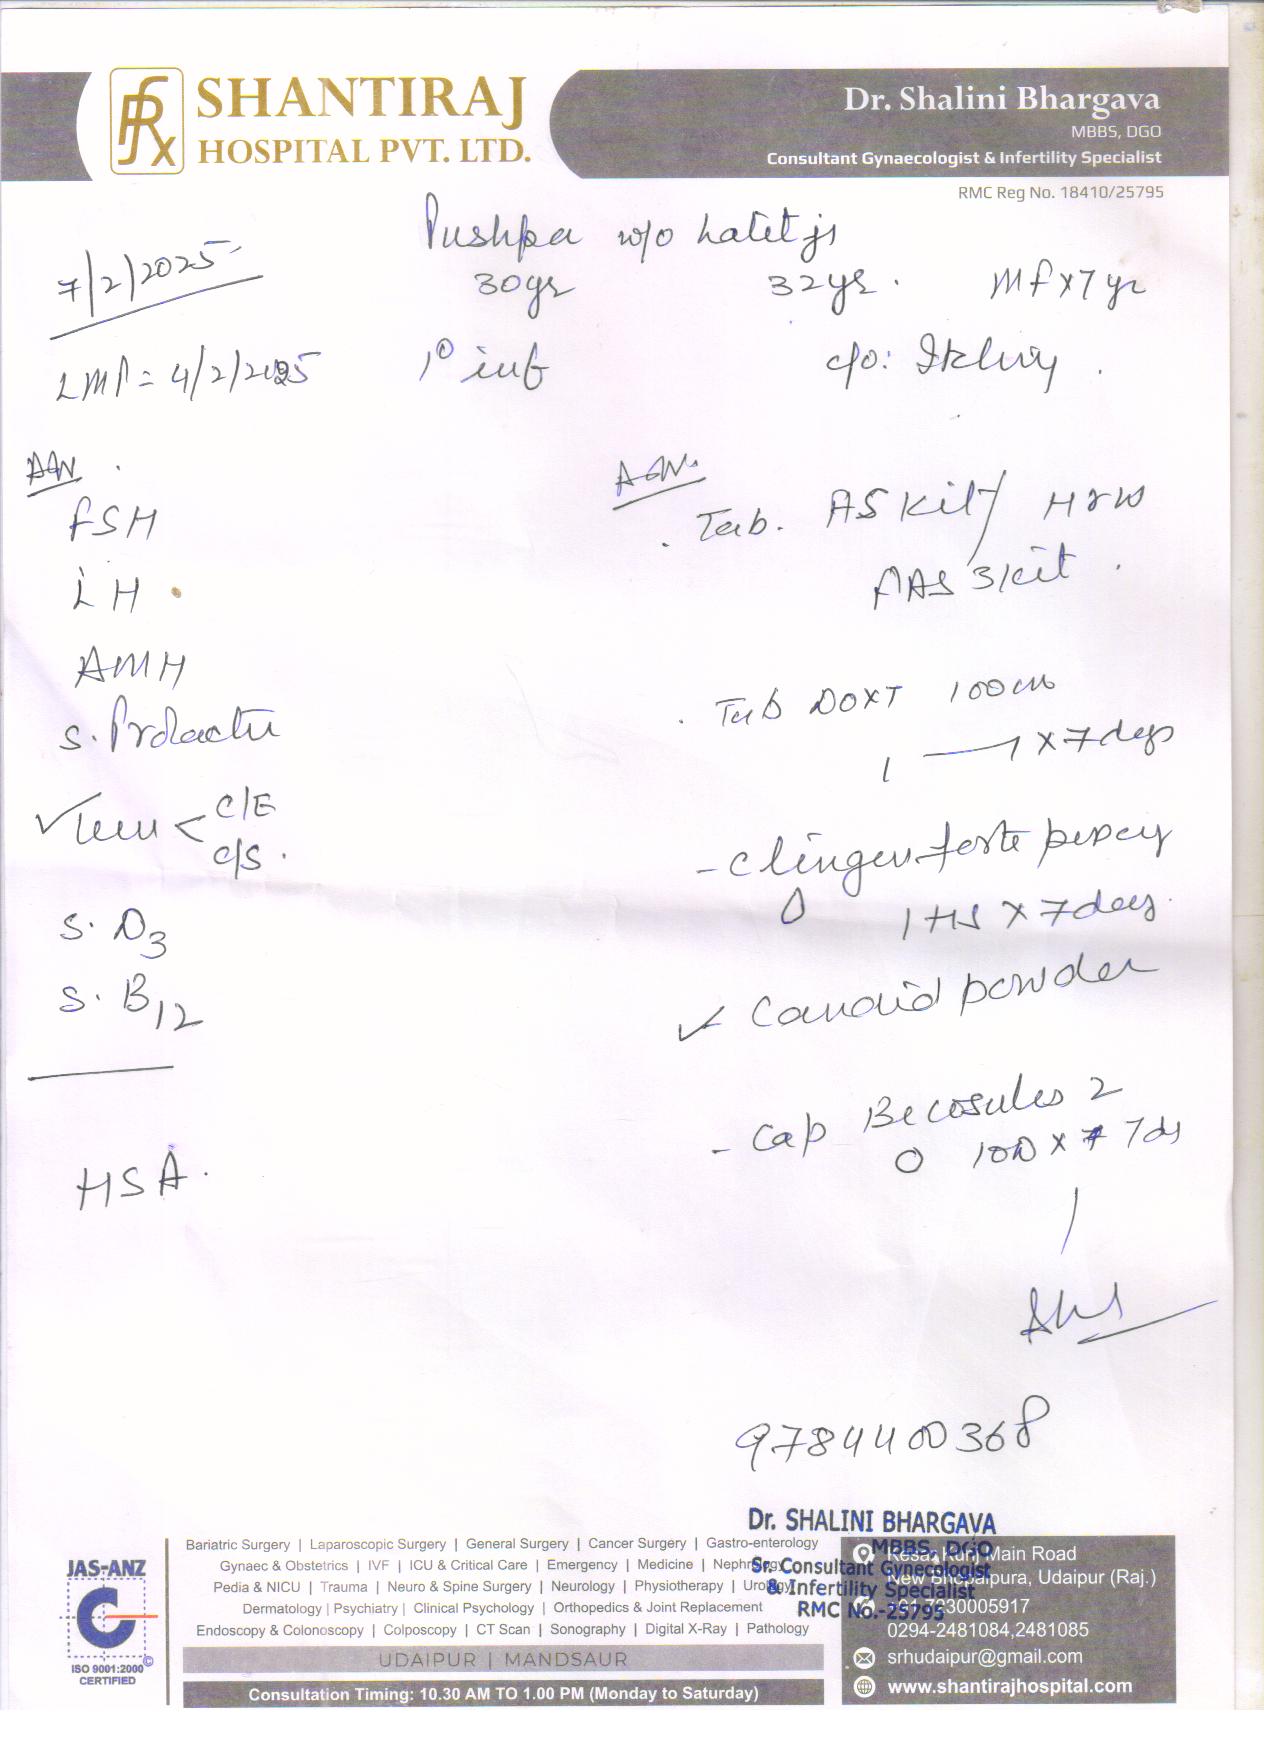 SHANTIRAJ
HOSPITAL PVT. LTD.
Dr. Shalini Bhargava
MBBS, DGO
Consultant Gynaecologist & Infertility Specialist
RMC Reg No. 18410/25795
Pushpa w/o Lalit ji
7/2/2025
30yr 32yr. MF x 7 yr
LMP = 4/2/2025 1° inf c/o: Itching.
FSH
Tab. AS Kit /
FAS 3 kit.
LH
AMH
Tab DOXT 100
1 — 1 x 7 days
S. Prolactin
C/E
C/S.
Clingen forte pessary
1 HS x 7 days.
S. D3
S. B12
Candid powder
- Cap Becosules 2
0 1OD x 7 ds
HSA.
9784400368
Dr. SHALINI BHARGAVA
MBBS, DGO
Sr. Consultant Gynecologist
& Infertility Specialist
RMC No.-25795
JAS-ANZ
ISO 9001:2000
CERTIFIED
Bariatric Surgery | Laparoscopic Surgery | General Surgery | Cancer Surgery | Gastro-enterology
Gynaec & Obstetrics | IVF | ICU & Critical Care | Emergency | Medicine | Nephrology
Pedia & NICU | Trauma | Neuro & Spine Surgery | Neurology | Physiotherapy | Urology
Dermatology | Psychiatry | Clinical Psychology | Orthopedics & Joint Replacement
Endoscopy & Colonoscopy | Colposcopy | CT Scan | Sonography | Digital X-Ray | Pathology
UDAIPUR | MANDSAUR
Consultation Timing: 10.30 AM TO 1.00 PM (Monday to Saturday)
Main Road
New Bhopalpura, Udaipur (Raj.)
+91 7230005917
0294-2481084,2481085
srhudaipur@gmail.com
www.shantirajhospital.com